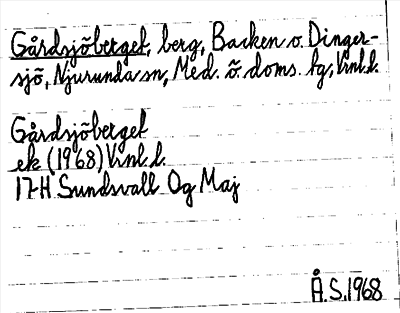 Gårdsjöberget, berg, Backen o. Dinger-
sjö, Njurunda sn, Med. ö. doms. tg, Vrnl.l.
Gårdsjöberget
ek (1968) Vrnl.l.
17H Sundsvall Og Maj
Å.S. 1968